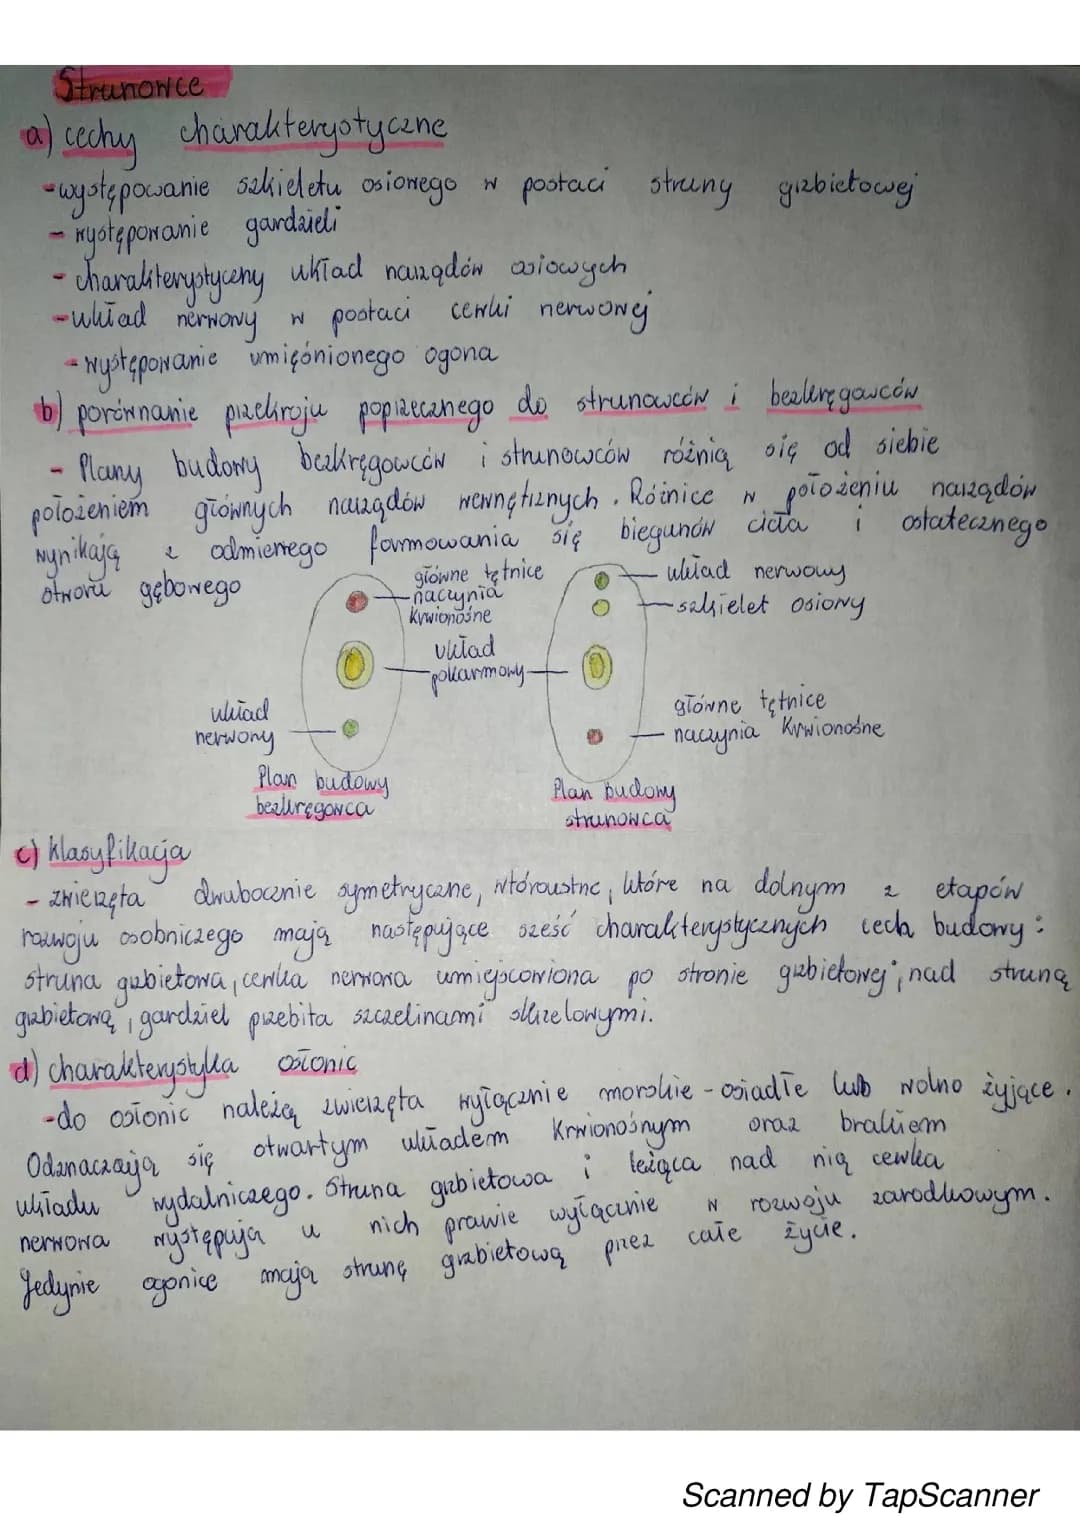 Strunowce
a) cechy charakterystyczne
- występowanie szkieletu osiowego w postaci struny grzbietowej
- występowanie gardzieli
- charakterystyczny układ narządów osiowych
- układ nerwowy w postaci cewki nerwowej
- występowanie umięśnionego ogona
b) porównanie przekroju poprzecznego do strunowców i bezkręgowców
- Plany budowy bezkręgowców i strunowców różnią się od siebie
położeniem głównych narządów wewnętrznych. Różnice w położeniu narządów
wynikają z odmiennego formowania się biegunów ciała i ostatecznego
otworu gębowego
główne tętnice
naczynia
krwionośne
układ
pokarmowy
układ
nerwowy
Plan budowy
bezkręgowca
układ nerwowy
szkielet osiowy
główne tętnice
naczynia krwionośne
Plan budowy
strunowca
c) klasyfikacja
- zwierzęta dwubocznie symetryczne, wtórouste, które na dolnym z etapów
rozwoju osobniczego mają następujące sześć charakterystycznych cech budowy:
struna grzbietowa, cewka nerwowa umiejscowiona po stronie grzbietowej, nad struną
grzbietową, gardziel przebita szczelinami skrzelowymi.
d) charakterystyka osłonic
- do osłonic należą zwierzęta wyłącznie morskie - osiadłe lub wolno żyjące.
Odznaczają się otwartym układem krwionośnym oraz brakiem
układu wydalniczego. Struna grzbietowa i leżąca nad nią cewka
nerwowa występują u nich prawie wyłącznie w rozwoju zarodkowym.
Jedynie ogonice mają strunę grzbietową przez całe życie.
Scanned by TapScanner